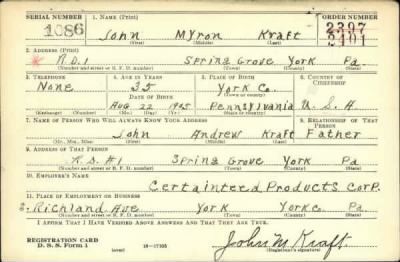 SERIAL NUMBER 1. NAME (Print) ORDER NUMBER
1086 John Myron Kraft 2397
(First) (Middle) (Last) 2401
2. ADDRESS (Print)
R.D.1 Spring Grove York Pa
(Number and street or R. F. D. number) (Town) (County) (State)
3. TELEPHONE 4. AGE IN YEARS 5. PLACE OF BIRTH 6. COUNTRY OF CITIZENSHIP
None 35 York Co.
DATE OF BIRTH (Town or county)
Aug 22 1905 Pennsylvania U.S.A
(Mo.) (Day) (Yr.) (State or country)
7. NAME OF PERSON WHO WILL ALWAYS KNOW YOUR ADDRESS 8. RELATIONSHIP OF THAT PERSON
John Andrew Kraft Father
(Mr., Mrs., Miss) (First) (Middle) (Last)
9. ADDRESS OF THAT PERSON
R.D.#1 Spring Grove York Pa
(Number and street or R. F. D. number) (Town) (County) (State)
10. EMPLOYER'S NAME
Certainteed Products Corp.
11. PLACE OF EMPLOYMENT OR BUSINESS
Richland Ave York York Co. Pa
(Number and street or R. F. D. number) (Town) (County) (State)
I AFFIRM THAT I HAVE VERIFIED ABOVE ANSWERS AND THAT THEY ARE TRUE.
REGISTRATION CARD
D. S. S. Form 1 (over) 16—17105 John M. Kraft
(Registrant's signature)